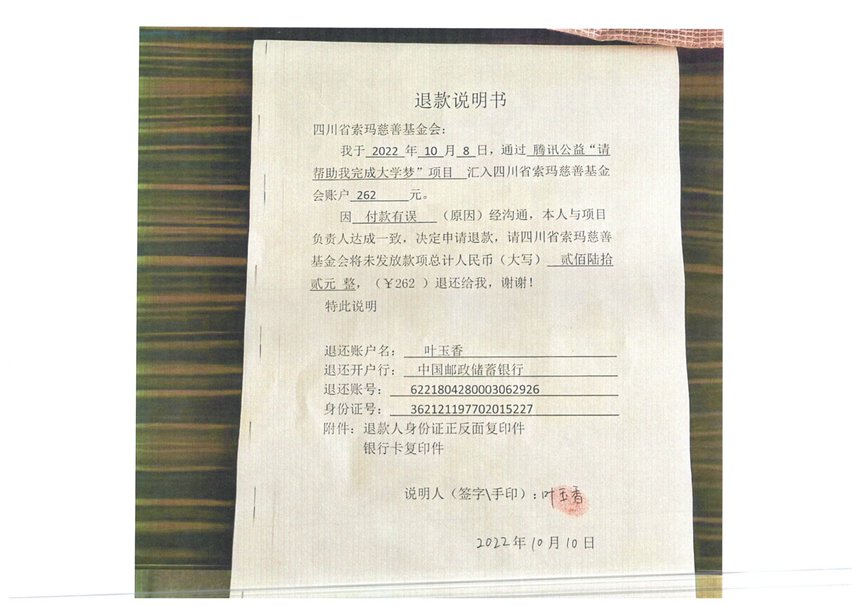 退款说明书
四川省索玛慈善基金会：
我于 2022 年 10 月 8 日，通过 腾讯公益“请
帮助我完成大学梦”项目 汇入四川省索玛慈善基金
会账户 262 元。
因 付款有误 （原因）经沟通，本人与项目
负责人达成一致，决定申请退款，请四川省索玛慈善
基金会将未发放款项总计人民币（大写） 贰佰陆拾
贰元 整，（￥262 ）退还给我，谢谢！
特此说明
退还账户名： 叶玉香
退还开户行： 中国邮政储蓄银行
退还账号： 6221804280003062926
身份证号： 362121197702015227
附件：退款人身份证正反面复印件
银行卡复印件
说明人（签字\手印）：叶玉香
2022年10月10日